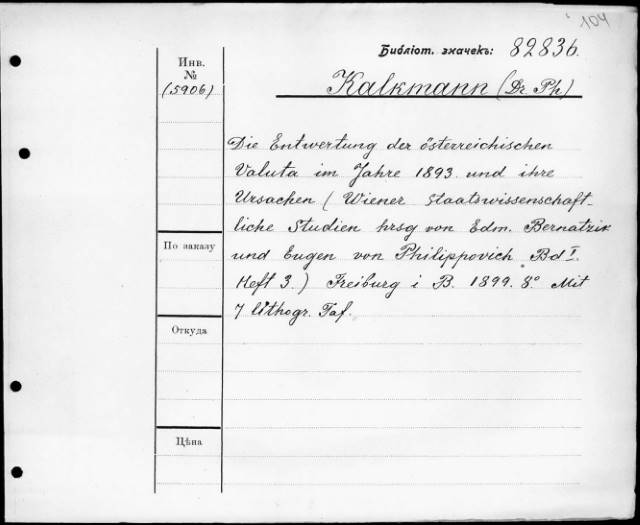 104
Библіот. значекъ: 82836.
Инв.
№
(5906)
Kalkmann (Dr. Ph)
Die Entwertung der österreichischen
Valuta im Jahre 1893 und ihre
Ursachen (Wiener staatswissenschaft-
liche Studien hrsg von Edm. Bernatzik
und Eugen von Philippovich Bd I.
Heft 3.) Freiburg i B. 1899. 8º. Mit
7 lithogr. Taf.
По заказу
Откуда
Цѣна